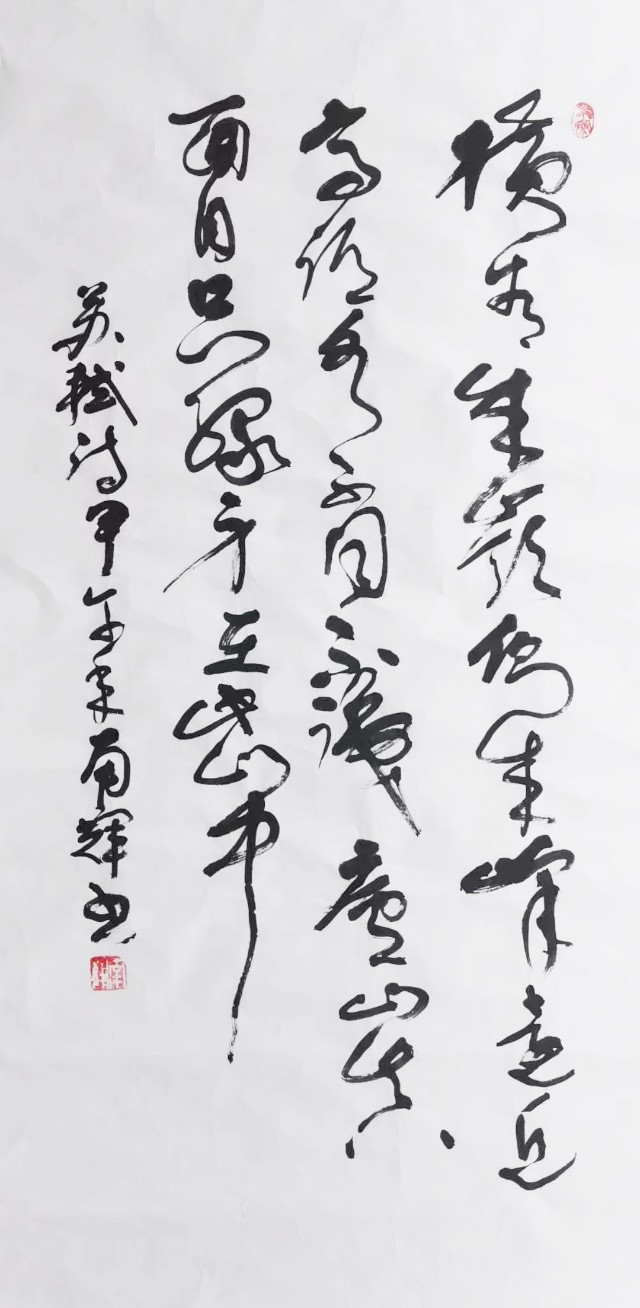 横看成岭侧成峰远近
高低各不同不识庐山真
面目只缘身在此山中
苏轼诗甲午年南辉书